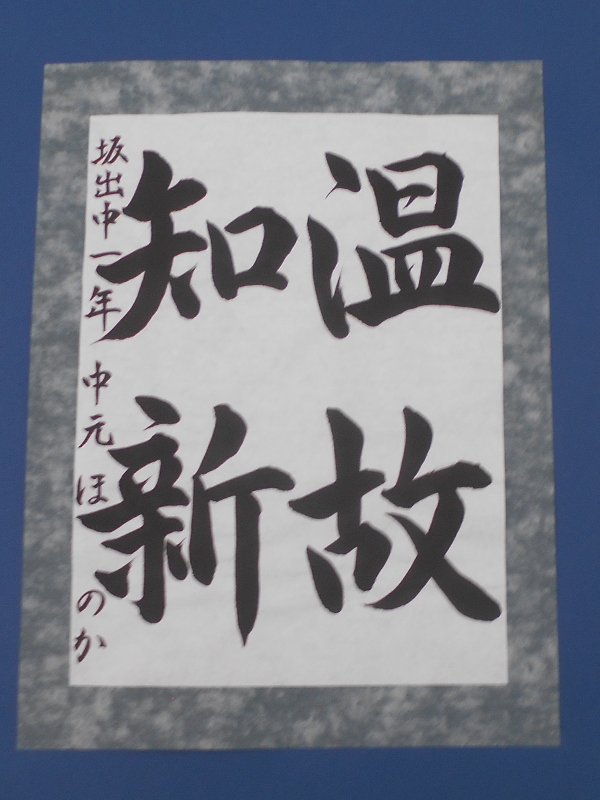 温故
知新
坂出中一年 中元ほのか